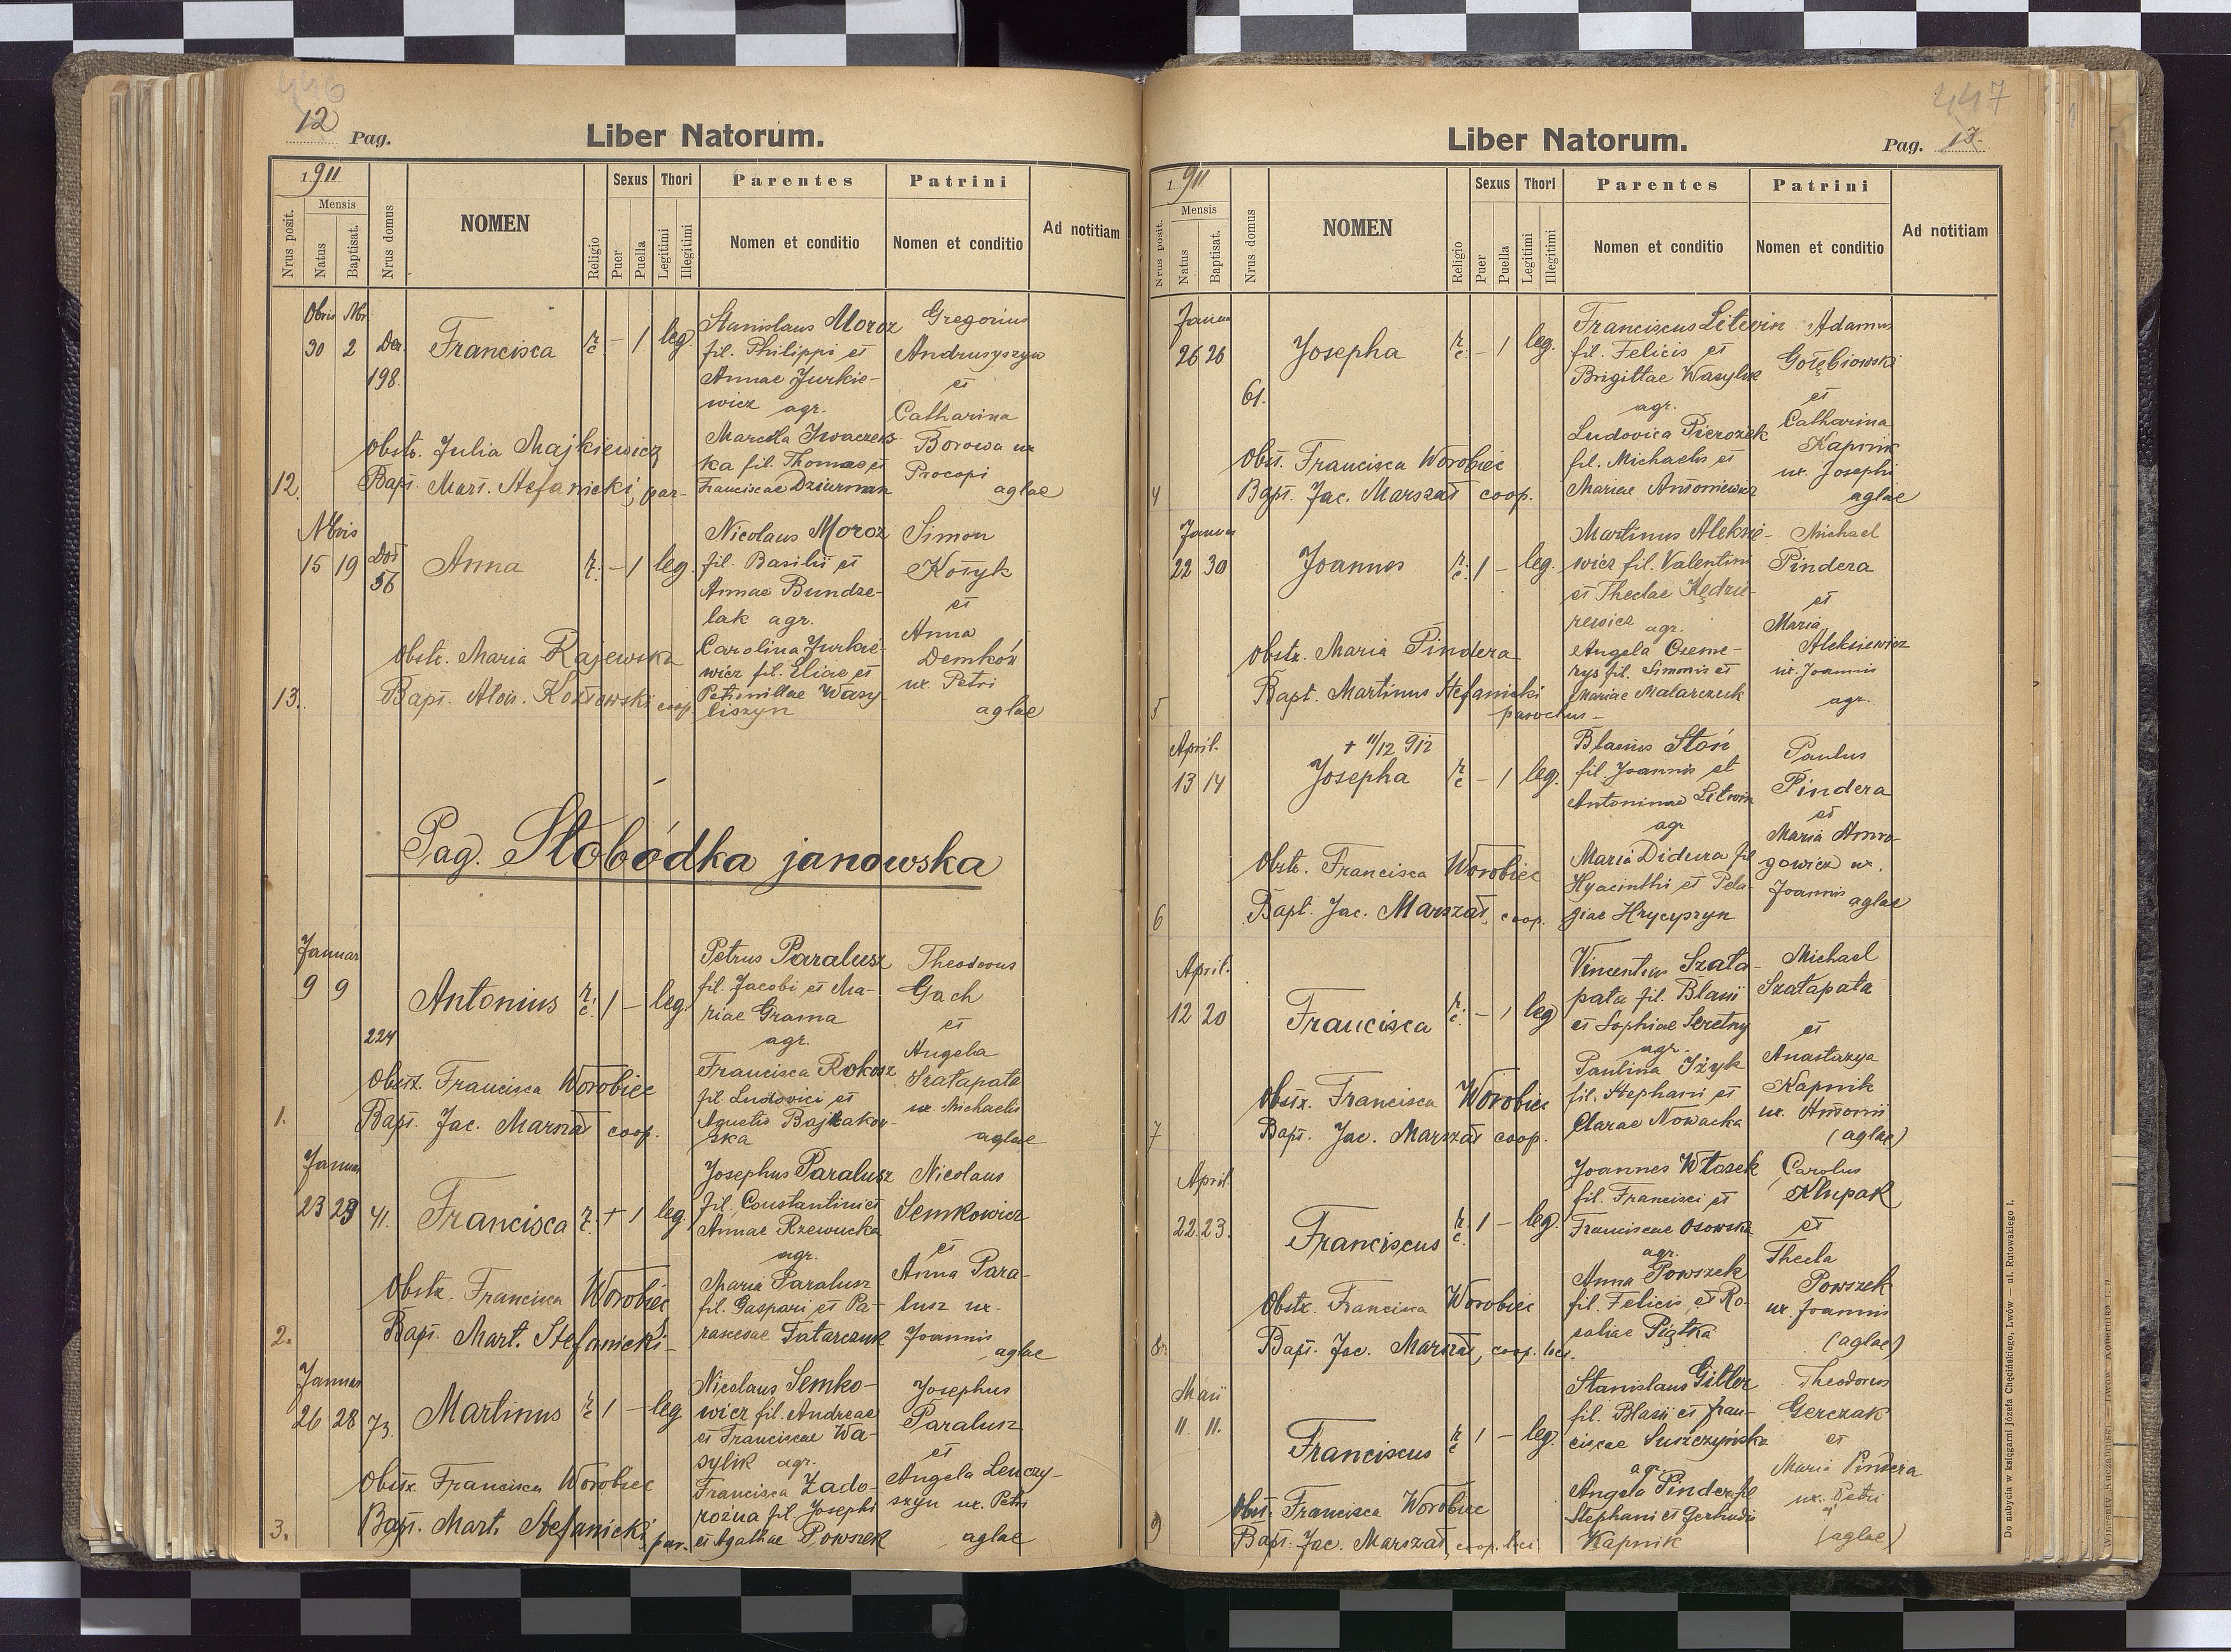 446
12 Pag.
Liber Natorum.
1911
Nrus posit.
Mensis
Natus
Baptisat.
Nrus domus
NOMEN
Religio
Sexus
Puer
Puella
Thori
Legitimi
Illegitimi
Parentes
Nomen et conditio
Patrini
Nomen et conditio
Ad notitiam
Obris Nbr
30 2
198.
Francisca
r. c. – 1 leg.
Stanislaus Moroz
fil. Philippi et
Annae Jurkie-
wicz agr.
Marcela Iwaczews-
ka fil. Thomae et
Franciscae Dziurman
Gregorius
Andrusyszyn
et
Catharina
Borowa ux
Procopi
aglae
Obstr. Julia Majkiewicz
12. Bapt. Mart. Stefanicki, par-
Nbris
15 19
56
Anna
r. – 1 leg.
Nicolaus Moroz
fil. Basilii et
Annae Bundze-
lak agr.
Carolina Jurkie-
wicz fil. Eliae et
Petronillae Wasy-
liszyn
Simon
Kosyk
et
Anna
Demków
ux Petri
aglae
Obstr. Maria Rajewska
13. Bapt. Alois. Kozłowski coop.
Pag. Słobódka janowska
Januar
9 9
224
Antonius
r. c. 1 – leg.
Petrus Paralusz
fil. Jacobi et Ma-
riae Grama
agr.
Francisca Rokosz
fil. Ludovici et
Theodorus
Gach
et
Angela
Szatapata
ux. Michaelis
aglae
Obstr. Francisca Worobiec
1. Bapt. Jac. Marszał coop.
Januar
23 23 41.
Francisca
r. + 1 leg.
Josephus Paralusz
fil. Constantini et
Annae Rzewucka
agr.
Maria Paralusz
fil. Gaspari et Pa-
rascesae Tatarczuk
Nicolaus
Semkowicz
et
Anna Para-
lusz ux.
Joannis
aglae
Obstr. Francisca Worobiec
2. Bapt. Mart. Stefanicki-
Januar
26 28 73.
Martinus
r. c 1 – leg
Nicolaus Semko-
wicz fil. Andreae
et Franciscae Wa-
sylik agr.
Francisca Zado-
rożna fil. Josephi
et Agathae Powszek
Josephus
Paralusz
et
Angela Lenczy-
szyn ux. Petri
aglae
Obstr. Francisca Worobiec
3. Bapt. Mart. Stefanicki, par.
447
Liber Natorum.
Pag. 13.
1911
Nrus posit.
Mensis
Natus
Baptisat.
Nrus domus
NOMEN
Religio
Sexus
Puer
Puella
Thori
Legitimi
Illegitimi
Parentes
Nomen et conditio
Patrini
Nomen et conditio
Ad notitiam
Januar
26 26
61.
Josepha
r. c. – 1 leg.
Franciscus Litwin
fil. Felicis et
Brigittae Wasylik
agr.
Ludovica Pierożek
fil. Michaelis et
Mariae Antoniewicz
Adamus
Gołębiowski
et
Catharina
Kapnik
ux. Josephi
aglae
Obst. Francisca Worobiec
4 Bapt. Jac. Marszał coop.
Januar
22 30
Joannes
r. c. 1 – leg.
Martinus Aleksie-
wicz fil. Valentini
et Theclae Kędzie-
rewicz agr.
Angela Czeme-
rys fil. Simonis et
Mariae Malarczuk
Michael
Pindera
et
Maria
Aleksiewicz
ux. Joannis
agr.
Obstr. Maria Pindera
5 Bapt. Martinus Stefanicki
parochus –
April.
13 14
+ 11/12 912
Josepha
r. c – 1 leg.
Blasius Stoń
fil. Joannis et
Antoninae Litwin
agr
Maria Didura fil
Hyacinthi et Pela-
giae Hrycyszyn
Paulus
Pindera
et
gowicz ux.
Joannis aglae
Obstr. Francisca Worobiec
6 Bapt. Jac. Marszał, coop.
April.
12 20
Francisca
r. c. – 1 leg
Vincentius Szata-
pata fil. Blasii
et Sophiae Seretny
agr.
Paulina Iżyk
fil. Stephani et
Clarae Nowacka
Michael
Szatapata
et
Anastazya
Kapnik
ux. Antonii
(aglae)
Obstr. Francisca Worobiec
7 Bapt. Jac. Marszał coop.
April
22 23.
Franciscus
r. c. 1 – leg.
Joannes Włosek
fil. Francisci et
Franciscae Osowska
agr.
Anna Powszek
fil. Felicis et Ro-
saliae Piątka
Carolus
Klupak
et
Thecla
Powszek
ux. Joannis
(aglae)
Obstr. Francisca Worobiec
8. Bapt. Jac. Marszał, coop. loci.
Maii
11 11.
Franciscus
r. c 1 – leg.
Stanislaus Gitler
fil. Blasii et Fran-
ciscae Suszczyńska
agr.
Angela Pindera fil
Stephani et Gertrudis
Kapnik
Theodorus
Gerczak
et
Maria Pindera
ux. Petri
(aglae)
Obst. Francisca Worobiec
9 Bapt. Jac. Marszał, coop. loci.
Do nabycia w księgarni Józefa Chęcińskiego, Lwów — ul. Rutowskiego 1.